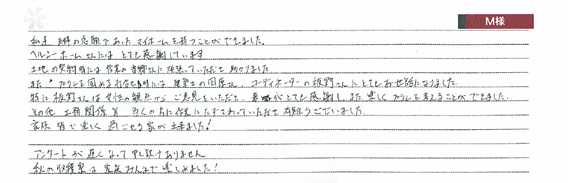 M様
私達 夫婦の念願であった マイホームを持つことができました。
ヘルシーホームさんには とても感謝しています
土地の契約時には 営業の さんに 頑張っていただき 助かりました
また、プランを固める打合せ時には 建築士の国原さん、コーディネーターの板野さんにとてもお世話になりました。
特に 板野さんは 女性の観点から ご意見をいただき、 とても感謝し、また 楽しく プランを考えることができました。
その他 工務関係 多くの方に作業にたずさわっていただき 有難うございました。
家族 皆で楽しく 過ごせる家が出来ました!
アンケートが遅くなって申し訳ありません
秋の収穫祭は 家族みんなで楽しめました!